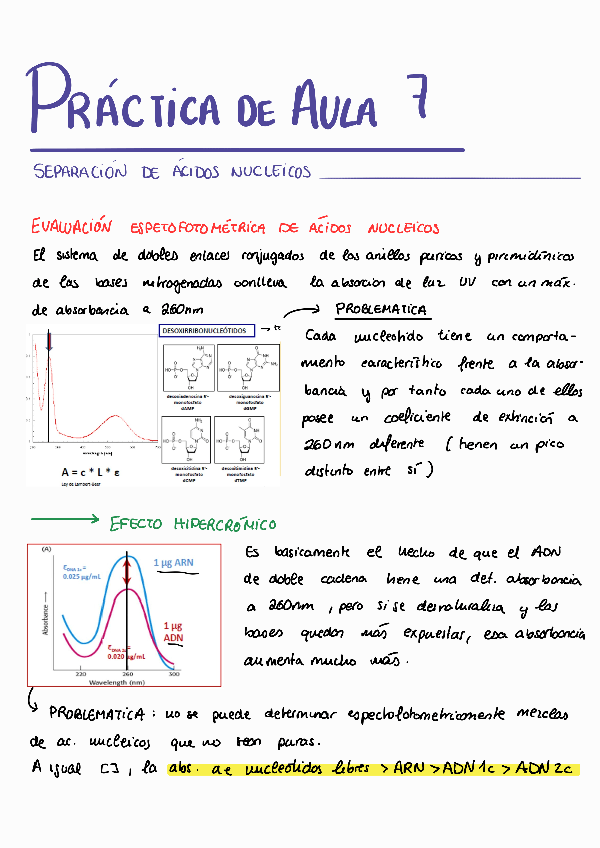 PRÁCTICA DE AULA 7
SEPARACIÓN DE ÁCIDOS NUCLEICOS
EVALUACIÓN ESPETOFOTOMÉTRICA DE ÁCIDOS NUCLEICOS
El sistema de dobles enlaces conjugados de los anillos puricos y pirimidínicos
de las bases nitrogenadas conlleva la absorcion de luz UV con un máx.
de absorbancia a 260nm
PROBLEMATICA
DESOXIRRIBONUCLEÓTIDOS
Cada nucleotido tiene un comporta-
miento característico frente a la absor-
bancia y por tanto cada uno de ellos
posee un coeficiente de extinción a
260nm diferente (tienen un pico
distinto entre sí)
desoxiadenosina 5'-
monofosfato
dAMP
desoxiguanosina 5'-
monofosfato
dGMP
desoxicitidina 5'-
monofosfato
dCMP
desoxitimidina 5'-
monofosfato
dTMP
A = c * L * ε
Ley de Lambert-Beer
EFECTO HIPERCRÓMICO
(A)
1 µg ARN
0.025 µg/mL
1 µg
ADN
0.020 µg/mL
Absorbance
220 260 300
Wavelength (nm)
Es basicamente el hecho de que el ADN
de doble cadena tiene una det. absorbancia
a 260nm, pero si se desnaturaliza y las
bases quedan más expuestas, esa absorbancia
aumenta mucho más.
PROBLEMATICA: no se puede determinar espectofotometricamente mezclas
de ac. nucleicos que no sean puras.
A igual [], la abs. de nucleótidos libres > ARN > ADN 1c > ADN 2c